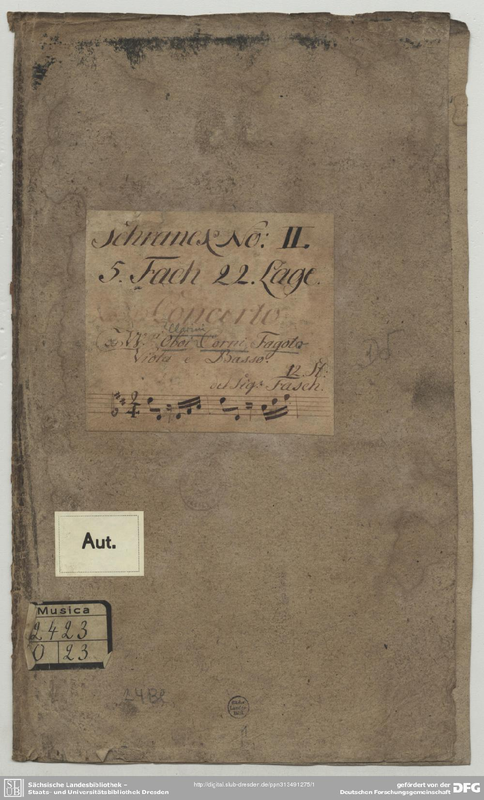 Schranck No: II.
5. Fach 22. Lage.
Concerto
co VV.ni Oboi Corni Fagotti
Viola e Basso.
12. St.
del Sigr. Fasch.
Aut.
Musica
2423
O 23
2482
Sächsische Landesbibliothek -
Staats- und Universitätsbibliothek Dresden
http://digital.slub-dresden.de/ppn313491275/1
gefördert von der
Deutschen Forschungsgemeinschaft
DFG